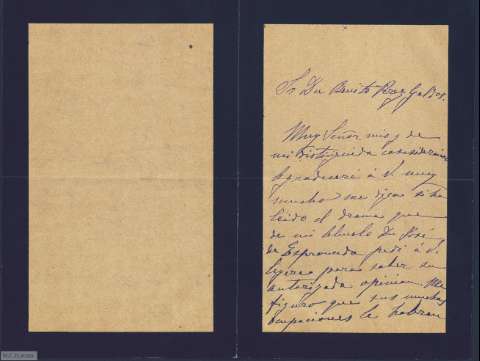 Sr Dn Benito Perez Galdos.
Muy Señor mio y de
mi distinguida consideracion
Agradeceré á V. muy
mucho me diga si ha
leido el drama que
de mi abuelo Dn José
de Espronceda pedi á V.
leyera para saber su
autorizada opinion. Me
figuro que sus muchas
ocupaciones le habran